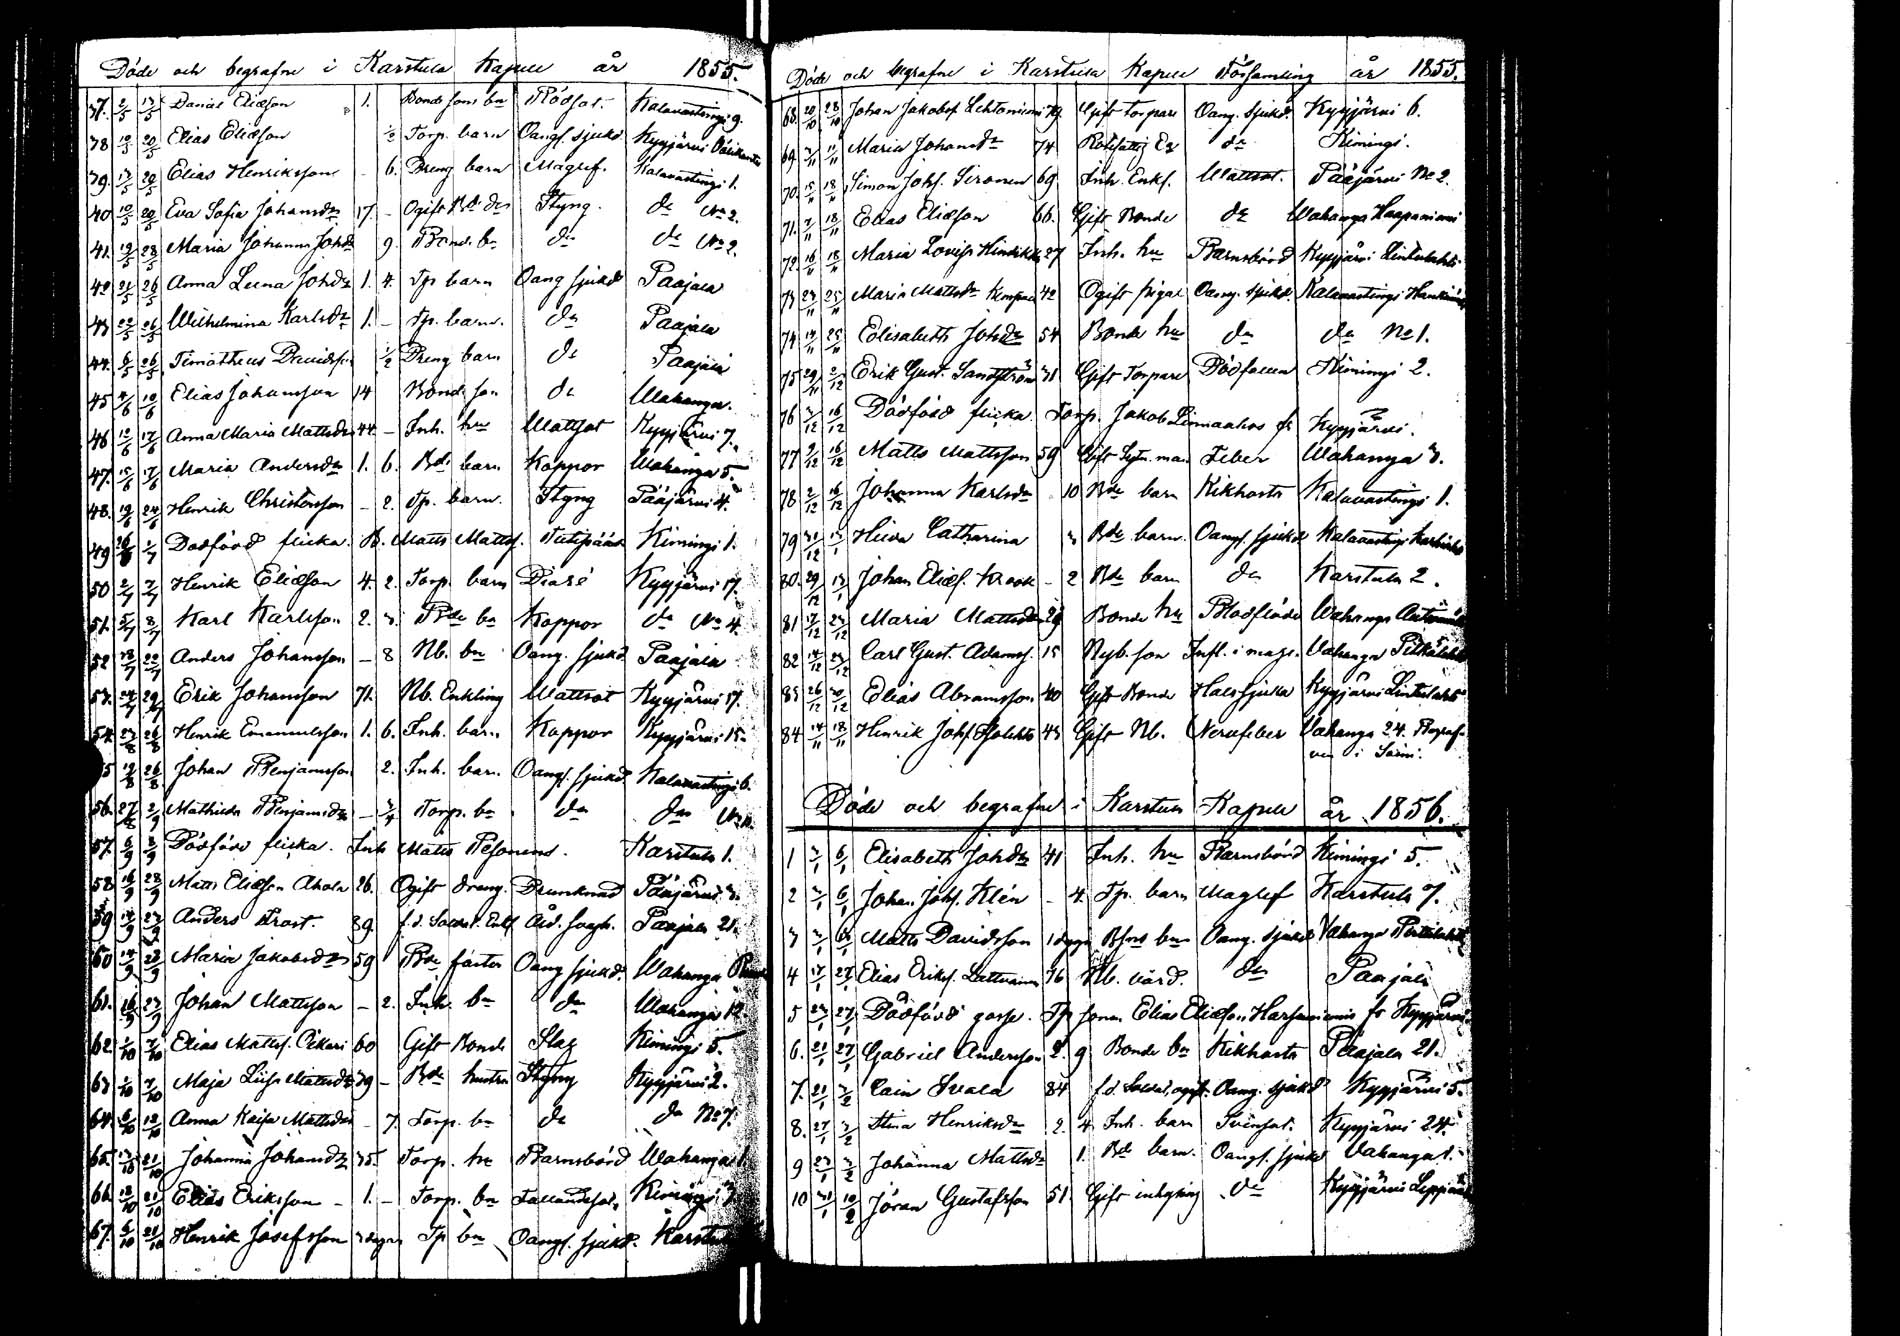 Döde och begrafne i Karstula Kapell år 1855.
37. 2/5 13/5 Daniel Eliæson 1. Bonde sons bn Rödsot. Kalavastingi 9.
38 12/5 20/5 Elias Eliæson 1/2 Torp. barn Oangf. sjukd Kyyjärvi
39. 13/5 20/5 Elias Henriksson - 6. Dreng barn Magref. Kalavastingi 1.
40 10/5 20/5 Eva Sofia Johansdr 17. - Ogift Styng. do No 2.
41. 19/5 28/5 Maria Johanna Johdr 9. Bond. bn do do No 2.
42 21/5 26/5 Anna Leena Johdr 1. 4. Tp barn Oang sjukd Paajala
43 22/5 26/5 Wilhelmina Karlsdr 1. - Tp. barn. do Paajala
44. 6/5 26/5 Timotheus Davidson 1/2 Dreng barn do Paajala
45 4/6 10/6 Elias Johansson 14 Bond. son do Wahanga.
46 12/6 17/6 Anna Maria Mattsdr 44. - Inh. hu Wattsot Kyyjärvi 7.
47. 15/6 17/6 Maria Andersdr 1. 6. Bde barn Koppor Wahanga 5.
48. 19/6 24/6 Henrik Christersson - 2. Tp. barn. Styng Pääjärvi 4.
49 26/6 1/7 Dödfödd flicka. B. Matts Mattss. Kimingi 1.
50 2/7 7/7 Henrik Eliæson 4. 2. Torp. barn Diaré Kyyjärvi 17.
51. 5/7 8/7 Karl Karlsson 2. 3. Bde bn Koppor do No 4.
52 18/7 22/7 Anders Johansson - 8 Nb. bn Oang. sjukd Paajala
53. 24/7 29/7 Erik Johansson 71. Nb. Enkling Wattsot Kyyjärvi 17.
54. 23/8 26/8 Henrik Emanuelsson 1. 6. Inh. barn Koppor Kyyjärvi 15.
5 19/8 26/8 Johan Benjamsson 2. Inh. barn. Oangf. sjukd. Kalavastingi 6.
56. 27/8 2/9 Mathilda Benjamsdr - 3/4 Torp. bn do do No
57. 6/9 8/9 Dödfödd flicka. Inh Matts Pesonens. Karstula 1.
58 16/9 28/9 Matts Eliæson Ahola 26. Ogift dreng. Drunknad Pääjärvi 3.
59 14/9 23/9 Anders Frost. 89. f.d. Soldat. Enkl Åld. svagh. Paajala 21.
60 14/9 23/9 Maria Jakobsdr 59 Bde Oang sjukd. Wahanga
61. 16/9 23/9 Johan Mattsson - 2. Inh. bn do Wahanga 12.
62 1/10 7/10 Elias Mattss. Oikari 60 Gift Bonde Slag Kimingi 5.
63 1/10 7/10 Maja Lisa Mattsdr 39 - Bde hustru Styng Kyyjärvi 2.
64. 6/10 12/10 Anna Kaisa Mattsdr - 7. Torp. bn do do No 7.
65. 13/10 21/10 Johanna Johansdr 35. Torp. hu Barnsbörd Wahanga 1.
66. 18/10 21/10 Elias Eriksson - 1. - Torp. bn Fallandesot. Kimingi 7.
67. 6/10 21/10 Henrik Josefsson 3 dagar Tp bn Oangf. sjukd. Karstula
Döde och begrafne i Karstula Kapell Församling år 1855.
68. 20/10 28/10 Johan Jakobss. Lehtoniemi 79. Gift Torpare Oang. sjukd. Kyyjärvi 6.
69. 3/11 11/11 Maria Johansdr 74 Rotefattig Ea do Kimingi.
70. 15/11 18/11 Simon Johss. Sironen 69. Inh. Enkl. Wattsot. Pääjärvi No 2.
71. 7/11 18/11 Elias Eliæson 66. Gift Bonde do Wahanga Haapaniemi
72. 16/11 18/11 Maria Lovisa Hindriksdr 27 Inh. hu Barnsbörd Kyyjärvi Lintulahti
73 23/11 25/11 Maria Mattsdr 42 Ogift pigar Oang. sjukd. Kalavastingi
74 19/11 25/11 Elisabeth Johdr 54 Bonde hu do do No 1.
75 29/11 2/12 Erik Gust. Sandström 31 Gift Torpare Kimingi 2.
76 3/12 16/12 Dödfödd flicka. Torp. Jakob Linnanahos fr Kyyjärvi.
77 9/12 16/12 Matts Mattsson 59 Gift Feber Wahanga 3.
78 2/12 16/12 Johanna Karlsdr 10 Bde barn Kikhosta Kalavastingi 1.
79 31/12 13/1 Heva Catharina 3 Bde barn. Oangf. sjukd Kalavastingi
80. 29/12 13/1 Johan Eliæs. Krook - 2 Bde barn do Karstula 2.
81 17/12 23/12 Maria Mattsdr 29 Bonde hu Blodflöde Wahanga
82 14/12 23/12 Carl Gust. Adamss. 15 Nyb. son Infl. i mage. Vahanga Pitkälahti
83 26/12 30/12 Elias Abramsson 40 Gift Bonde Halssjuka Kyyjärvi Lintulahti
84 14/11 18/11 Henrik Johss. 43 Gift Nb. Nervfeber Vahanga 24. Begraf-
ven i Saarij.
Döde och begrafne i Karstula Kapell år 1856.
1 3/1 6/1 Elisabeth Johdr 41 Inh. hu Barnsbörd Kimingi 5.
2 3/1 6/1 Johan Johss. Klén - 4. Tp. barn Magref Karstula 7.
3 3/1 6/1 Matts Davidsson 1 dygn bn Oang. sjukd Vahanga
4 17/1 27/1 Elias Erikss. 76 Nb. värd. do Paajala
5 23/1 27/1 Dödfödd gosse. Tp sonen Elias Eliæson fr Kyyjärvi
6. 21/1 27/1 Gabriel Andersson 2. 9 Bonde bn Kikhosta Paajala 21.
7. 21/1 3/2 Cain Svala 84 f.d. Soldat, ogift. Oang. sjukd Kyyjärvi 5.
8. 27/1 3/2 Stina Henriksdr 2. 4 Inh. barn Kyyjärvi 24.
9 23/1 3/2 Johanna Mattsdr 1. Bde barn. Oangf. sjukd Vahanga 1.
10 31/1 10/2 Jöran Gustafsson 51. Gift inhysing do Kyyjärvi